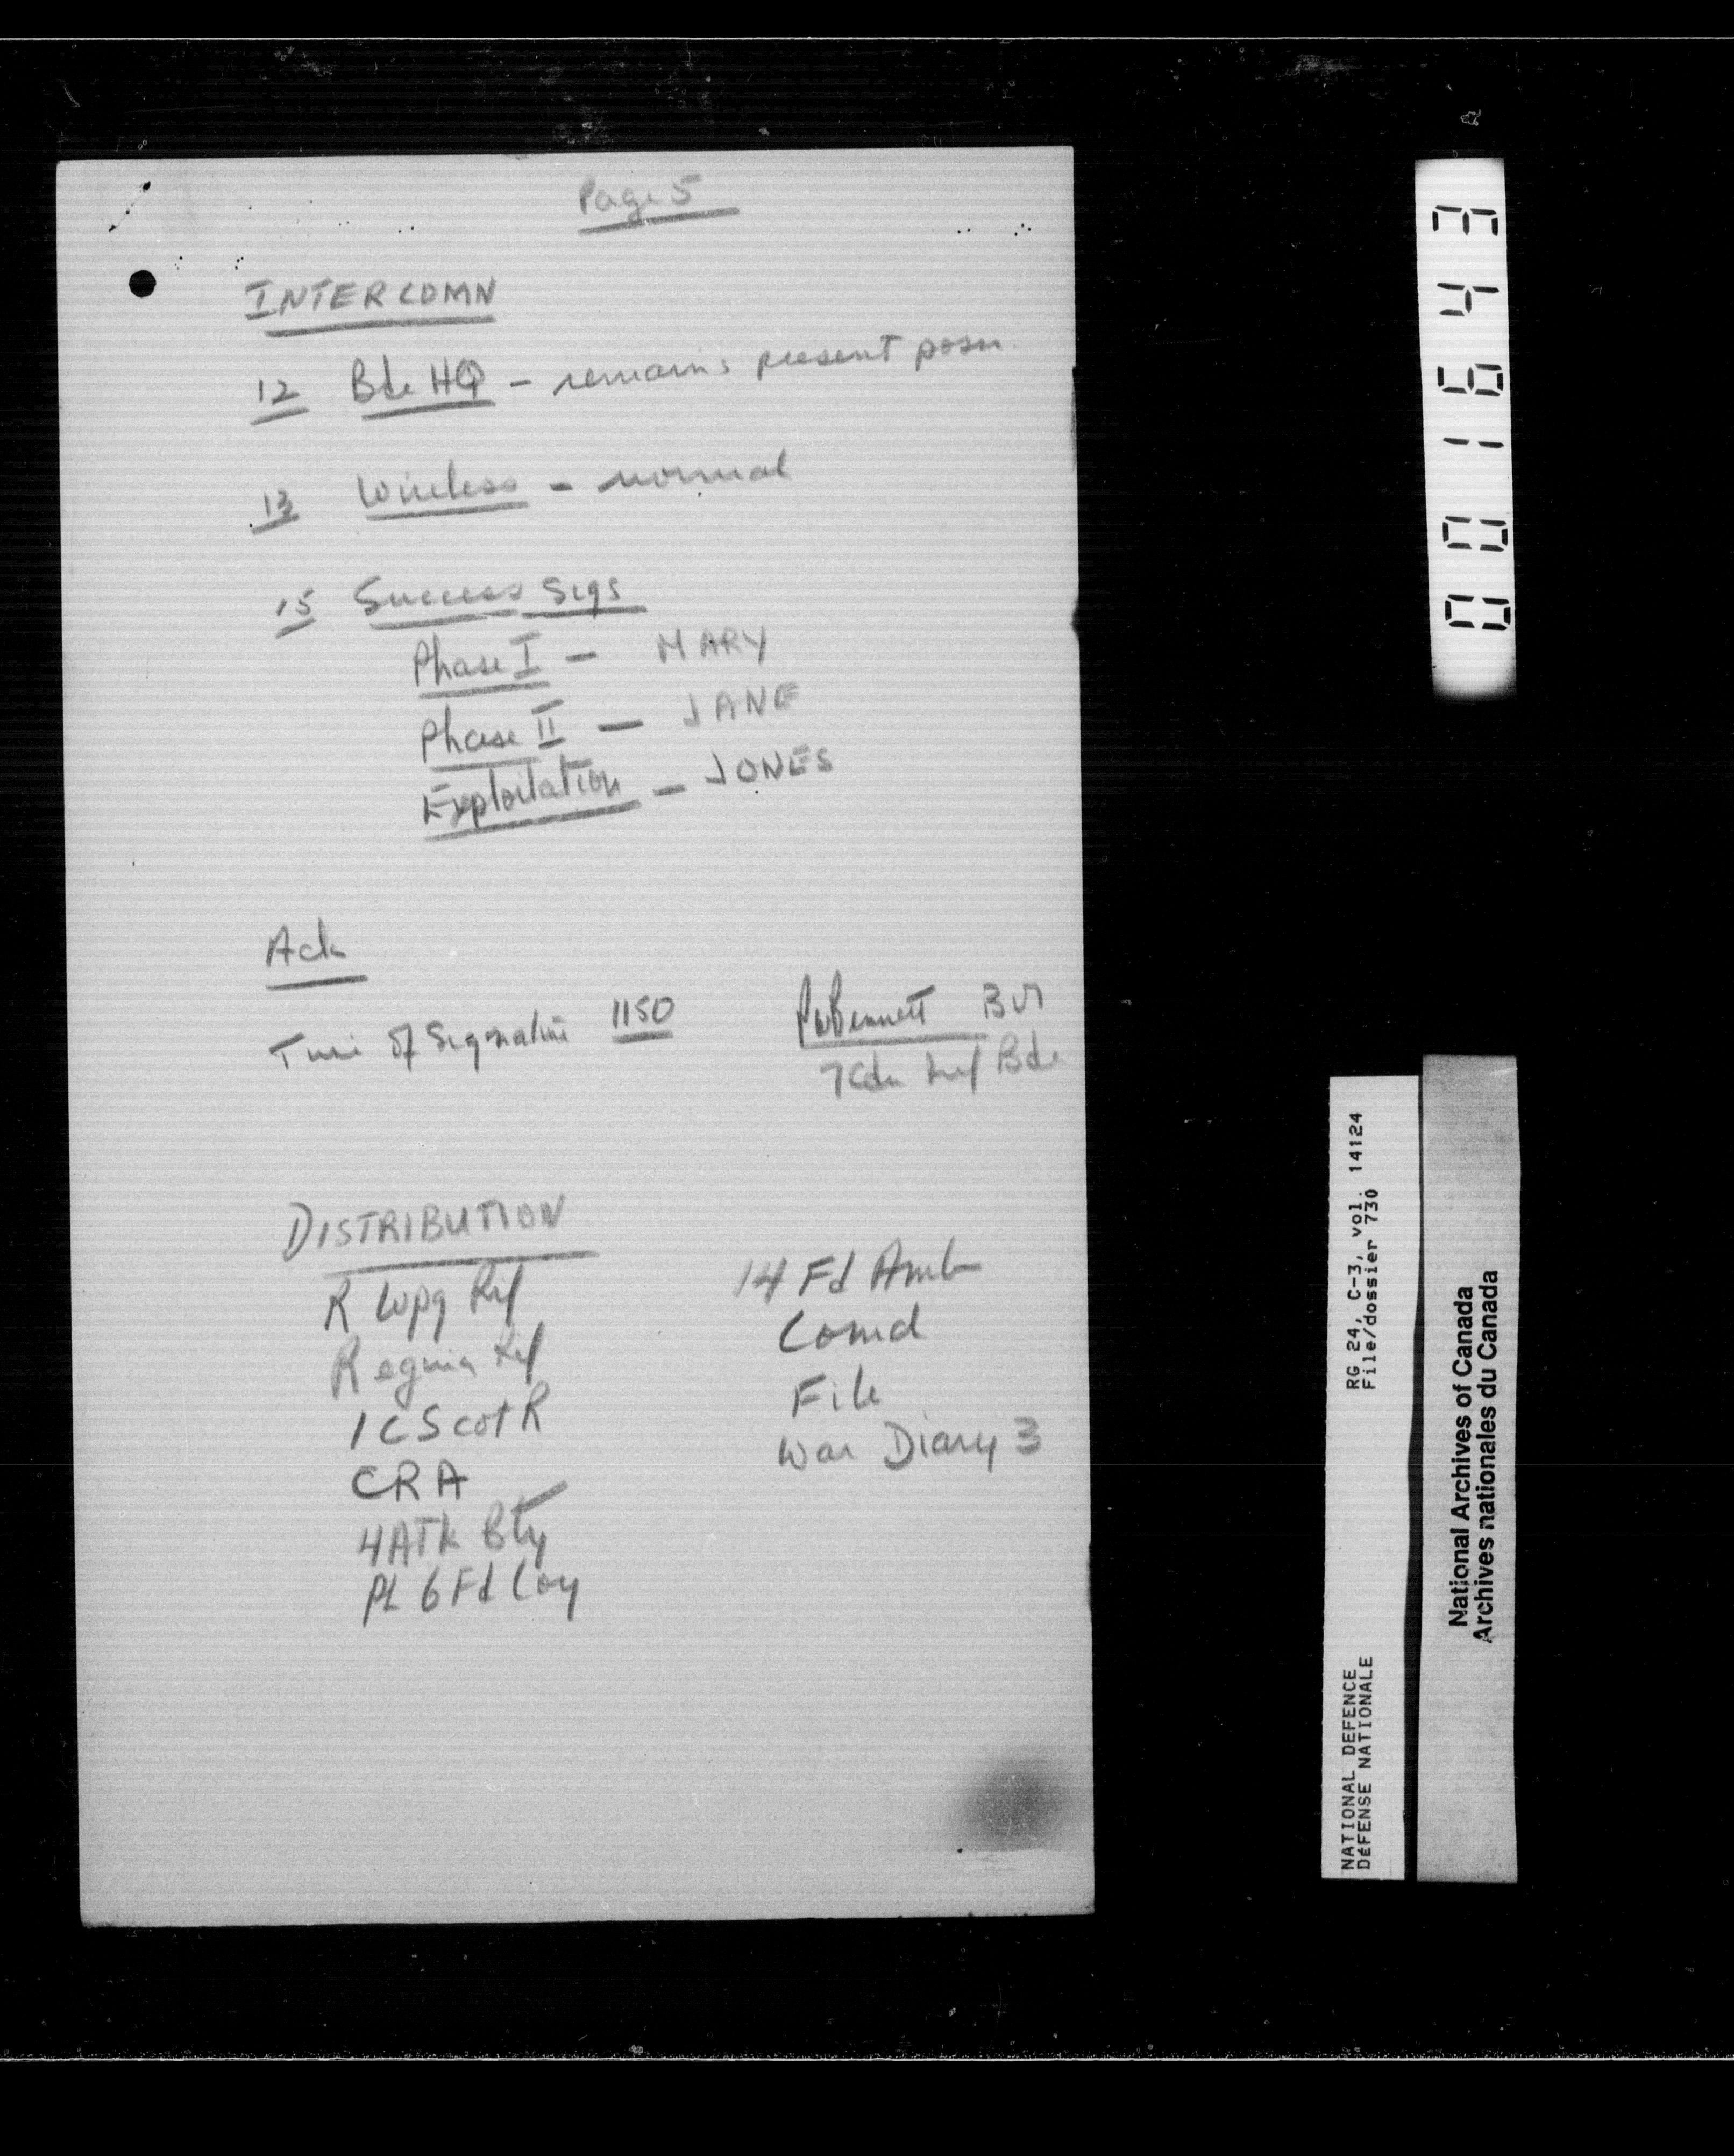 Page 5
INTERCOMN
12 Bde HQ - remains present posn
13 Wireless - normal
15 Success Sigs
Phase I - MARY
Phase II - JANE
Exploitation - JONES
Ack
Time of Signature 1150
PWBennett BM
7 Cdn Inf Bde
DISTRIBUTION
R Wpg Rif
Regina Rif
1 C Scot R
CRA
4 ATk Bty
Pl 6 Fd Coy
14 Fd Amb
Comd
File
War Diary 3
001643
RG 24, C-3, vol. 14124
File/dossier 730
NATIONAL DEFENCE
DÉFENSE NATIONALE
National Archives of Canada
Archives nationales du Canada